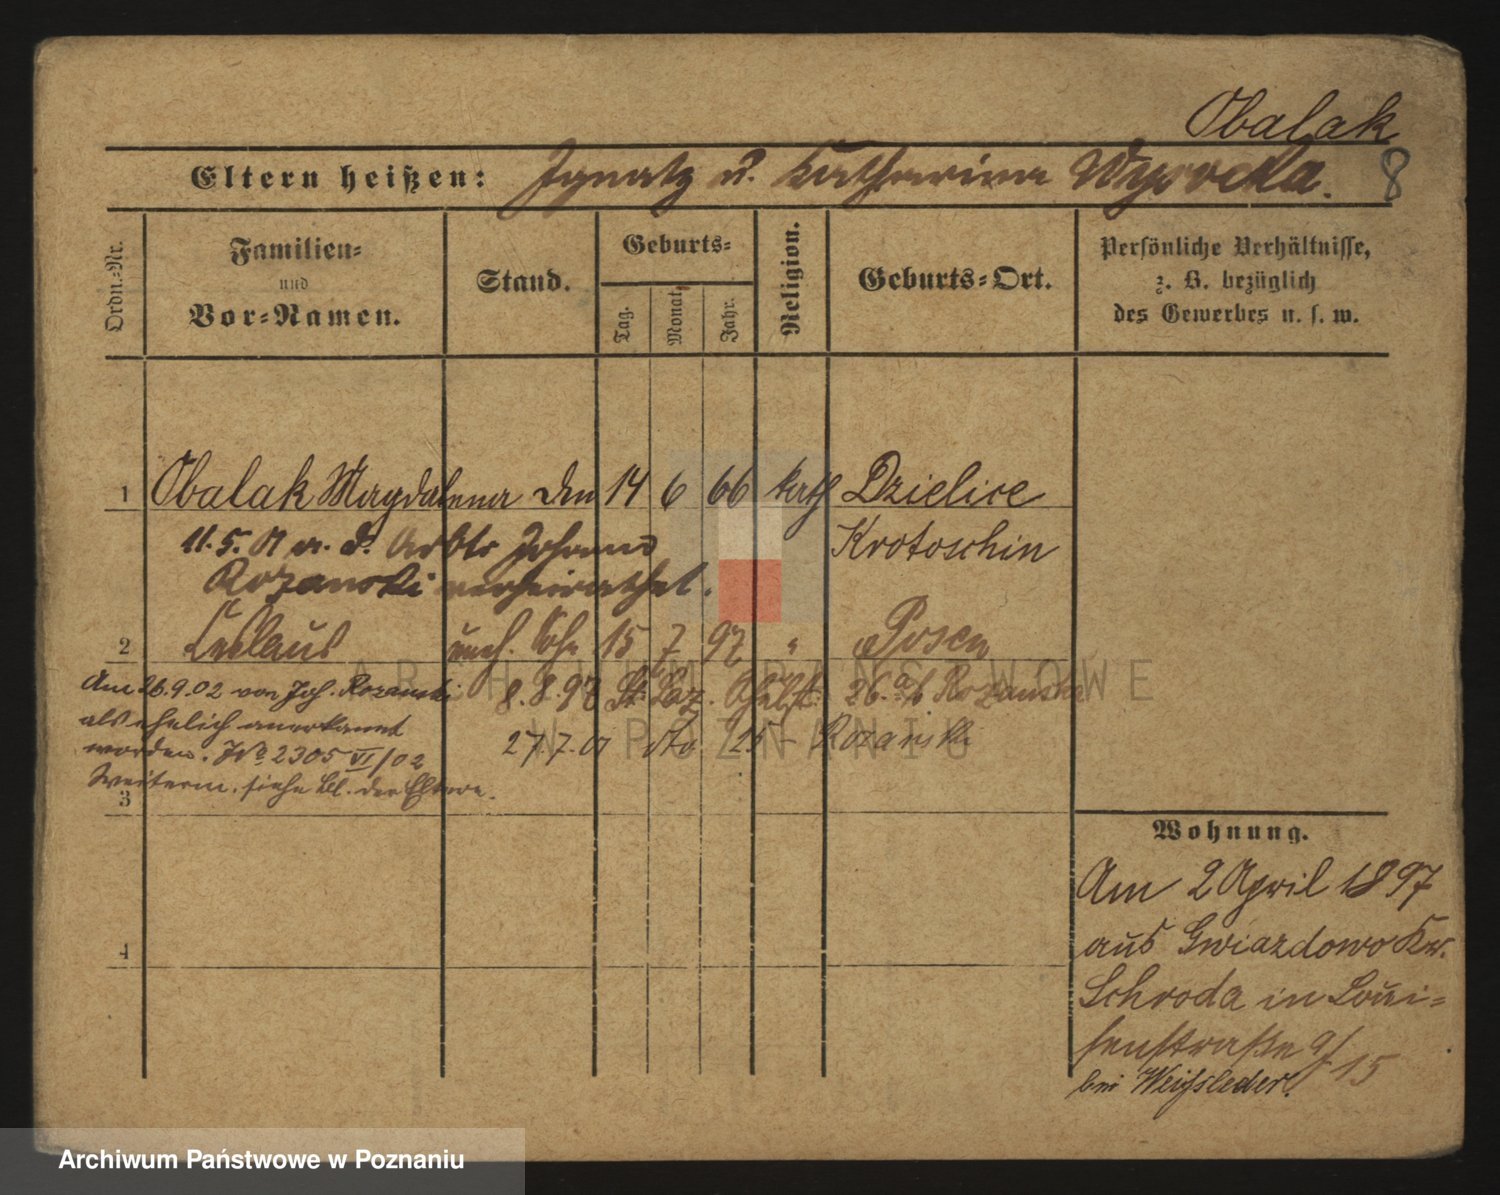 Obalak
Eltern heißen: Ignatz u. Katharina Wysocka. 8
Ordn.=Nr.
Familien=
und
Vor=Namen.
Stand.
Geburts=
Tag.
Monat.
Jahr.
Religion.
Geburts=Ort.
Persönliche Verhältnisse,
z. B. bezüglich
des Gewerbes u. s. w.
1 Obalak Magdalena den 14 6 66 kath Dzielice
Krotoschin
11. 5. a. d. Arbtr Johann
Rozanski verheirathet.
2 Ceslaus uneh. Sohn 15 7 97 " Posen
Am 26.9.02 von Joh. Rozanski
als ehelich anerkannt
worden. No 2305 VI/02
Weiterm. siehe Bl. der Eltern.
8. 8. 97 St. Laz. 26. Rozanska
27. 7. 01 dto 25 - Rozanski
3
4
Wohnung.
Am 2 April 1897
aus Gwiazdowo Kr.
Schroda in Loui=
senstraße 15
bei Weihsleder.
ARCHIWUM PAŃSTWOWE
W POZNANIU
Archiwum Państwowe w Poznaniu